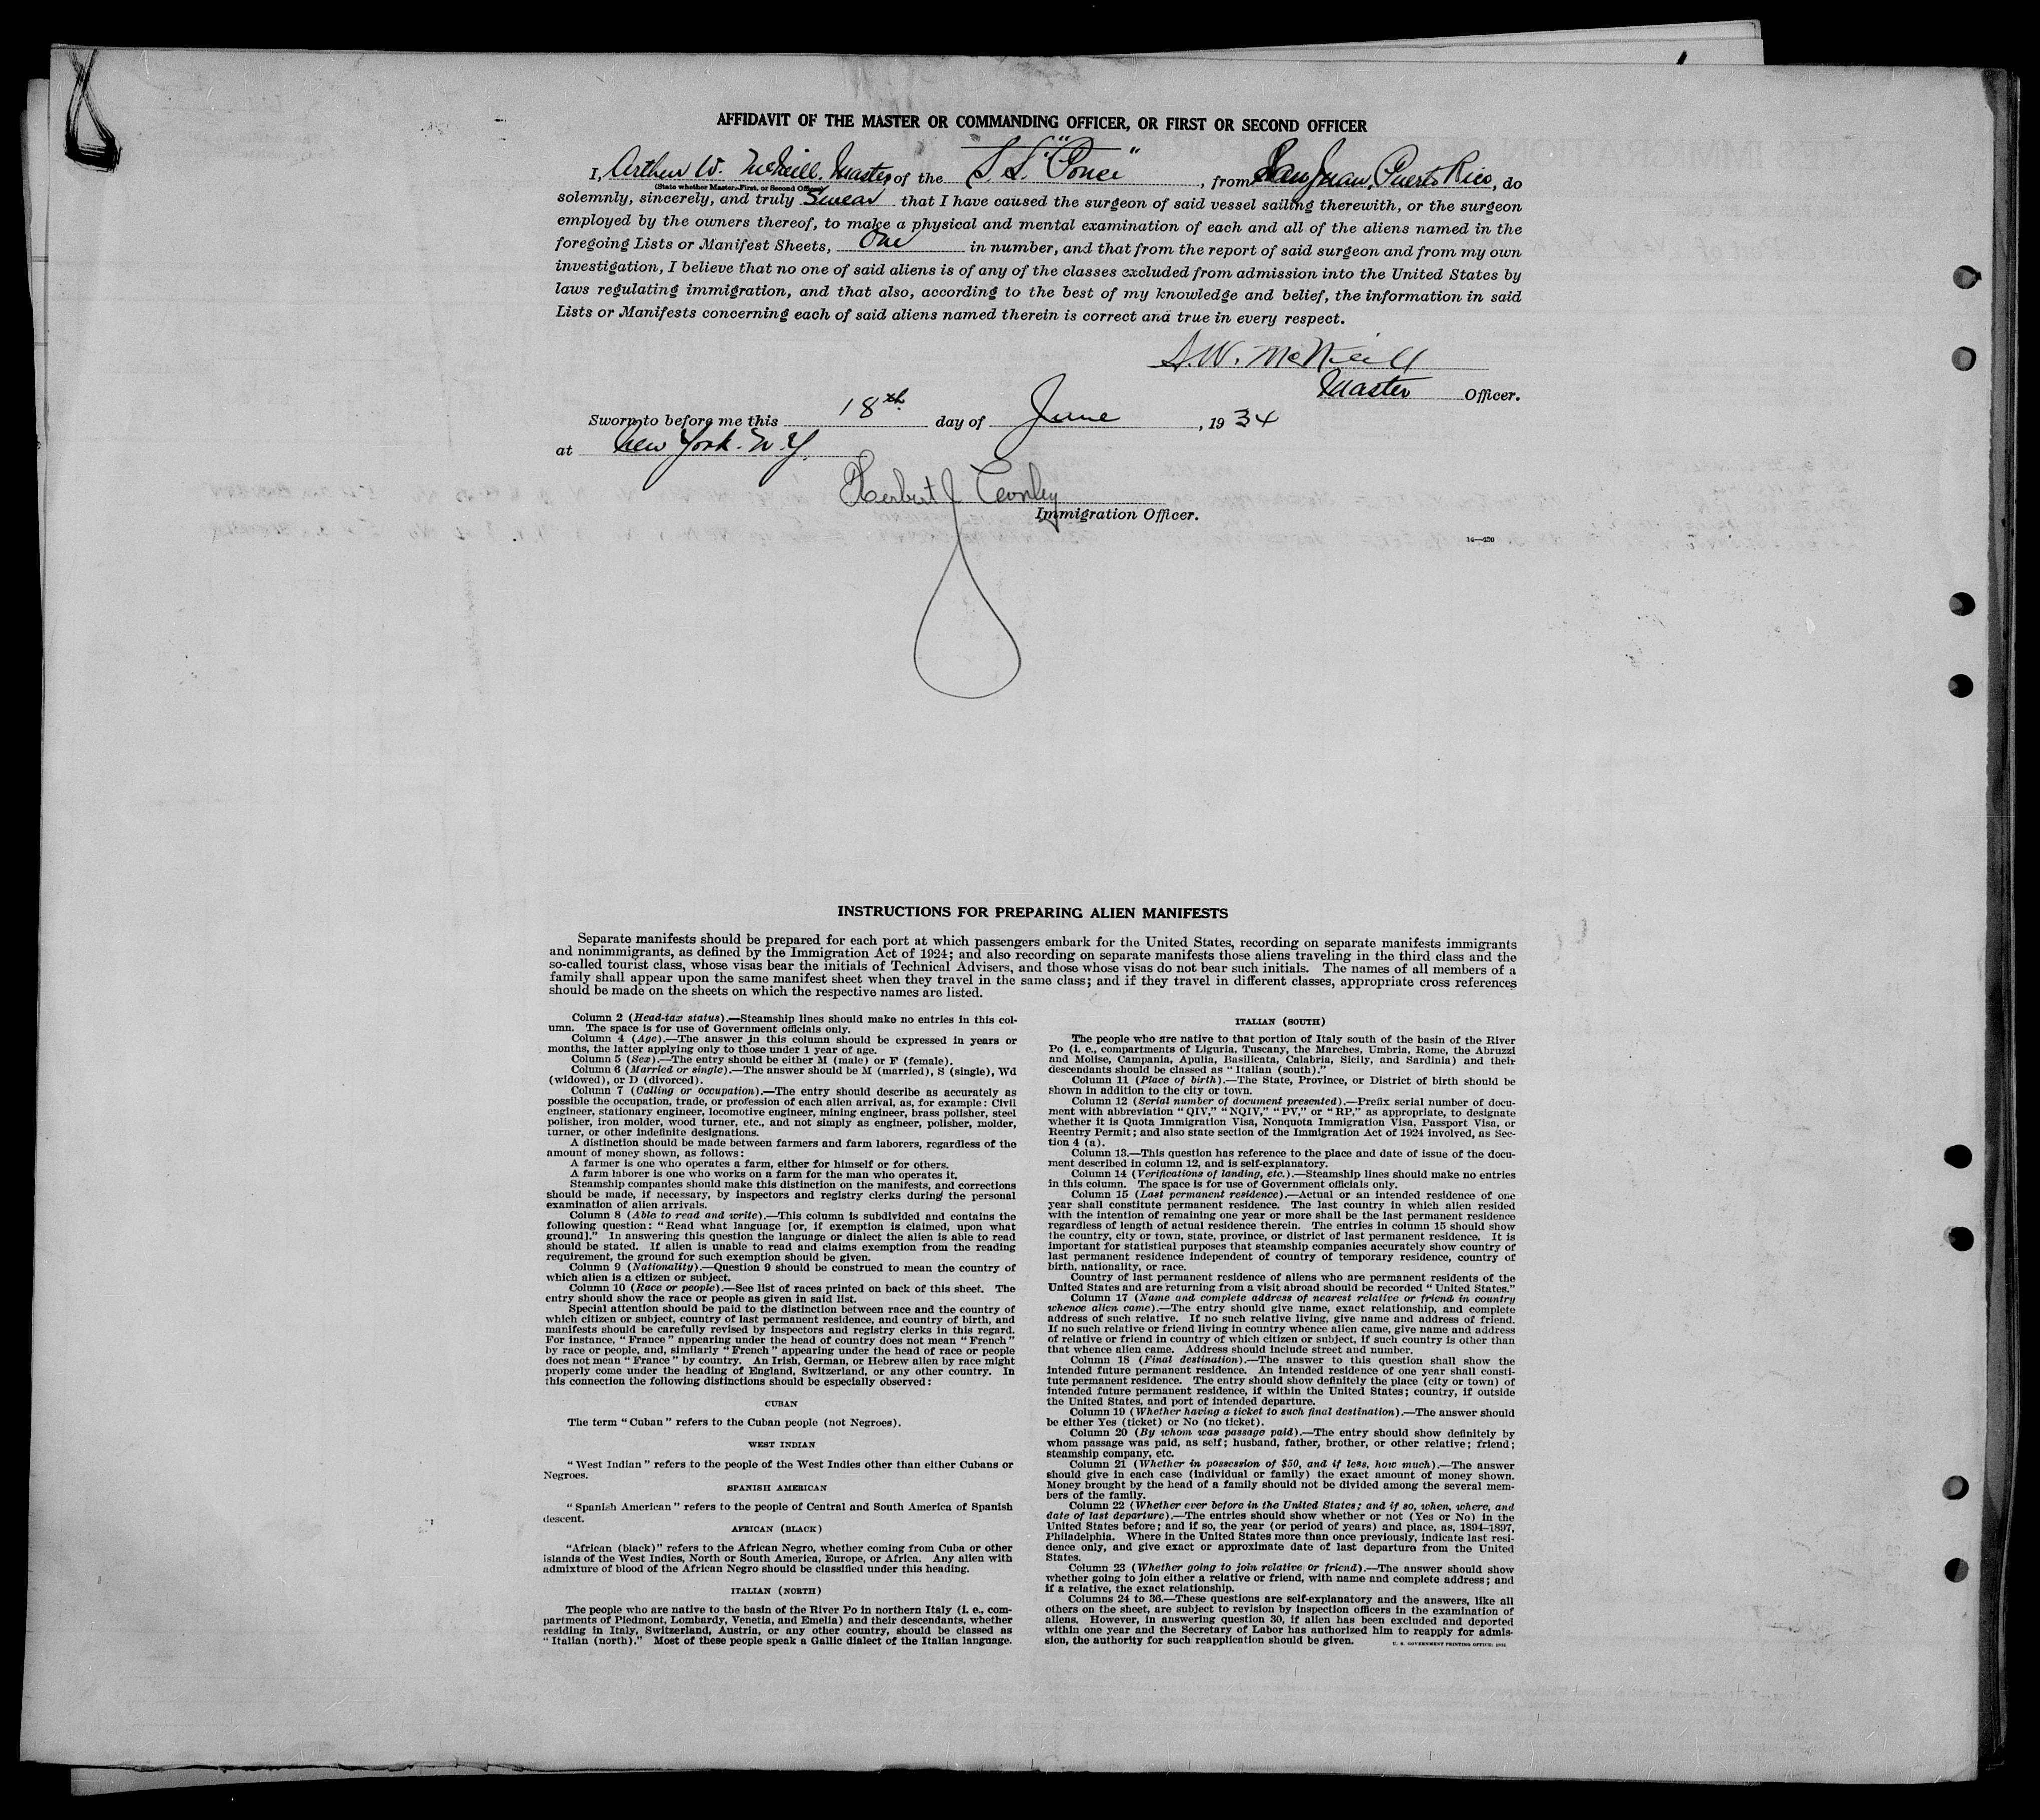 AFFIDAVIT OF THE MASTER OR COMMANDING OFFICER, OR FIRST OR SECOND OFFICER
I, Arthur W. McNeill, Master, of the S.S. "Ponce", from San Juan, Puerto Rico, do
(State whether Master, First, or Second Officer)
solemnly, sincerely, and truly Swear that I have caused the surgeon of said vessel sailing therewith, or the surgeon
employed by the owners thereof, to make a physical and mental examination of each and all of the aliens named in the
foregoing Lists or Manifest Sheets, One in number, and that from the report of said surgeon and from my own
investigation, I believe that no one of said aliens is of any of the classes excluded from admission into the United States by
laws regulating immigration, and that also, according to the best of my knowledge and belief, the information in said
Lists or Manifests concerning each of said aliens named therein is correct and true in every respect.
A. W. McNeill
Master Officer.
Sworn to before me this 18th day of June, 1934
at New York. N.Y.
Herbert J.
Immigration Officer.
INSTRUCTIONS FOR PREPARING ALIEN MANIFESTS
Separate manifests should be prepared for each port at which passengers embark for the United States, recording on separate manifests immigrants
and nonimmigrants, as defined by the Immigration Act of 1924; and also recording on separate manifests those aliens traveling in the third class and the
so-called tourist class, whose visas bear the initials of Technical Advisers, and those whose visas do not bear such initials. The names of all members of a
family shall appear upon the same manifest sheet when they travel in the same class; and if they travel in different classes, appropriate cross references
should be made on the sheets on which the respective names are listed.
Column 2 (Head-tax status).—Steamship lines should make no entries in this col-
umn. The space is for use of Government officials only.
Column 4 (Age).—The answer in this column should be expressed in years or
months, the latter applying only to those under 1 year of age.
Column 5 (Sex).—The entry should be either M (male) or F (female).
Column 6 (Married or single).—The answer should be M (married), S (single), Wd
(widowed), or D (divorced).
Column 7 (Calling or occupation).—The entry should describe as accurately as
possible the occupation, trade, or profession of each alien arrival, as, for example: Civil
engineer, stationary engineer, locomotive engineer, mining engineer, brass polisher, steel
polisher, iron molder, wood turner, etc., and not simply as engineer, polisher, molder,
turner, or other indefinite designations.
A distinction should be made between farmers and farm laborers, regardless of the
amount of money shown, as follows:
A farmer is one who operates a farm, either for himself or for others.
A farm laborer is one who works on a farm for the man who operates it.
Steamship companies should make this distinction on the manifests, and corrections
should be made, if necessary, by inspectors and registry clerks during the personal
examination of alien arrivals.
Column 8 (Able to read and write).—This column is subdivided and contains the
following question: "Read what language [or, if exemption is claimed, upon what
ground]." In answering this question the language or dialect the alien is able to read
should be stated. If alien is unable to read and claims exemption from the reading
requirement, the ground for such exemption should be given.
Column 9 (Nationality).—Question 9 should be construed to mean the country of
which alien is a citizen or subject.
Column 10 (Race or people).—See list of races printed on back of this sheet. The
entry should show the race or people as given in said list.
Special attention should be paid to the distinction between race and the country of
which citizen or subject, country of last permanent residence, and country of birth, and
manifests should be carefully revised by inspectors and registry clerks in this regard.
For instance, "France" appearing under the head of country does not mean "French"
by race or people, and, similarly "French" appearing under the head of race or people
does not mean "France" by country. An Irish, German, or Hebrew alien by race might
properly come under the heading of England, Switzerland, or any other country. In
this connection the following distinctions should be especially observed:
CUBAN
The term "Cuban" refers to the Cuban people (not Negroes).
WEST INDIAN
"West Indian" refers to the people of the West Indies other than either Cubans or
Negroes.
SPANISH AMERICAN
"Spanish American" refers to the people of Central and South America of Spanish
descent.
AFRICAN (BLACK)
"African (black)" refers to the African Negro, whether coming from Cuba or other
islands of the West Indies, North or South America, Europe, or Africa. Any alien with
admixture of blood of the African Negro should be classified under this heading.
ITALIAN (NORTH)
The people who are native to the basin of the River Po in northern Italy (i. e., com-
partments of Piedmont, Lombardy, Venetia, and Emelia) and their descendants, whether
residing in Italy, Switzerland, Austria, or any other country, should be classed as
"Italian (north)." Most of these people speak a Gallic dialect of the Italian language.
ITALIAN (SOUTH)
The people who are native to that portion of Italy south of the basin of the River
Po (i. e., compartments of Liguria, Tuscany, the Marches, Umbria, Rome, the Abruzzi
and Molise, Campania, Apulia, Basilicata, Calabria, Sicily, and Sardinia) and their
descendants should be classed as "Italian (south)."
Column 11 (Place of birth).—The State, Province, or District of birth should be
shown in addition to the city or town.
Column 12 (Serial number of document presented).—Prefix serial number of docu-
ment with abbreviation "QIV," "NQIV," "PV," or "RP," as appropriate, to designate
whether it is Quota Immigration Visa, Nonquota Immigration Visa, Passport Visa, or
Reentry Permit; and also state section of the Immigration Act of 1924 involved, as Sec-
tion 4 (a).
Column 13.—This question has reference to the place and date of issue of the docu-
ment described in column 12, and is self-explanatory.
Column 14 (Verifications of landing, etc.).—Steamship lines should make no entries
in this column. The space is for use of Government officials only.
Column 15 (Last permanent residence).—Actual or an intended residence of one
year shall constitute permanent residence. The last country in which alien resided
with the intention of remaining one year or more shall be the last permanent residence
regardless of length of actual residence therein. The entries in column 15 should show
the country, city or town, state, province, or district of last permanent residence. It is
important for statistical purposes that steamship companies accurately show country of
last permanent residence independent of country of temporary residence, country of
birth, nationality, or race.
Country of last permanent residence of aliens who are permanent residents of the
United States and are returning from a visit abroad should be recorded "United States."
Column 17 (Name and complete address of nearest relative or friend in country
whence alien came).—The entry should give name, exact relationship, and complete
address of such relative. If no such relative living, give name and address of friend.
If no such relative or friend living in country whence alien came, give name and address
of relative or friend in country of which citizen or subject, if such country is other than
that whence alien came. Address should include street and number.
Column 18 (Final destination).—The answer to this question shall show the
intended future permanent residence. An intended residence of one year shall consti-
tute permanent residence. The entry should show definitely the place (city or town) of
intended future permanent residence, if within the United States; country, if outside
the United States, and port of intended departure.
Column 19 (Whether having a ticket to such final destination).—The answer should
be either Yes (ticket) or No (no ticket).
Column 20 (By whom was passage paid).—The entry should show definitely by
whom passage was paid, as self; husband, father, brother, or other relative; friend;
steamship company, etc.
Column 21 (Whether in possession of $50, and if less, how much).—The answer
should give in each case (individual or family) the exact amount of money shown.
Money brought by the head of a family should not be divided among the several mem-
bers of the family.
Column 22 (Whether ever before in the United States; and if so, when, where, and
date of last departure).—The entries should show whether or not (Yes or No) in the
United States before; and if so, the year (or period of years) and place, as, 1894–1897,
Philadelphia. Where in the United States more than once previously, indicate last resi-
dence only, and give exact or approximate date of last departure from the United
States.
Column 23 (Whether going to join relative or friend).—The answer should show
whether going to join either a relative or friend, with name and complete address; and
if a relative, the exact relationship.
Columns 24 to 36.—These questions are self-explanatory and the answers, like all
others on the sheet, are subject to revision by inspection officers in the examination of
aliens. However, in answering question 30, if alien has been excluded and deported
within one year and the Secretary of Labor has authorized him to reapply for admis-
sion, the authority for such reapplication should be given.
U. S. GOVERNMENT PRINTING OFFICE: